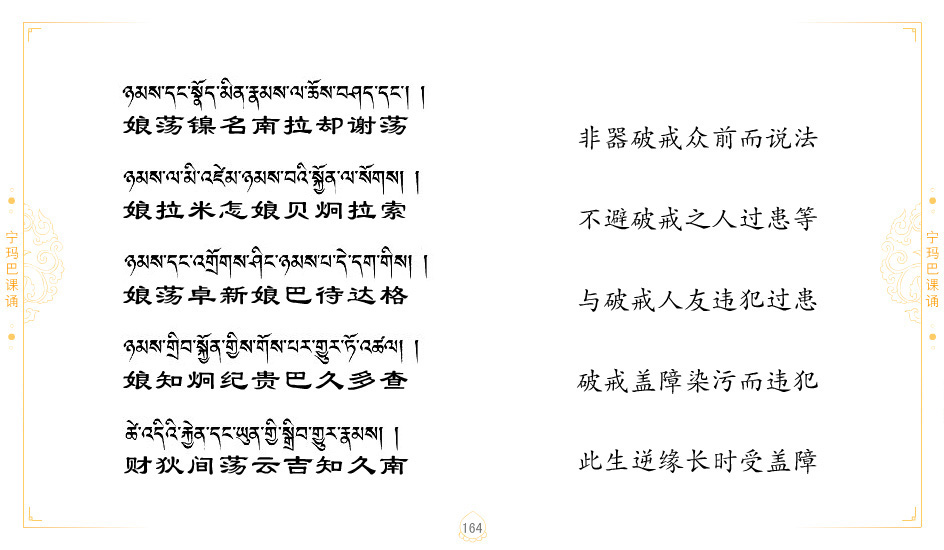 ཉམས་དང་སྣོད་མིན་རྣམས་ལ་ཆོས་བཤད་དང་། །
娘荡镍名南拉却谢荡
ཉམས་ལ་མི་འཛེམ་ཉམས་པའི་སྐྱོན་ལ་སོགས། །
娘拉米怎娘贝炯拉索
ཉམས་དང་འགྲོགས་ཤིང་ཉམས་པ་དེ་དག་གིས། །
娘荡卓新娘巴待达格
ཉམས་གྲིབ་སྐྱོན་གྱིས་གོས་པར་གྱུར་ཏོ་འཚལ། །
娘知炯纪贵巴久多查
ཚེ་འདིའི་རྐྱེན་དང་ཡུན་གྱི་སྒྲིབ་གྱུར་རྣམས། །
财狄间荡云吉知久南
非器破戒众前而说法
不避破戒之人过患等
与破戒人友违犯过患
破戒盖障染污而违犯
此生逆缘长时受盖障
宁玛巴课诵
宁玛巴课诵
164